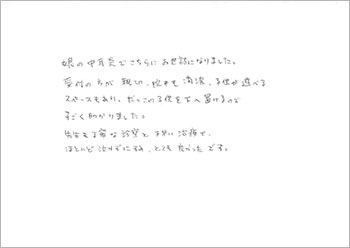 娘の中耳炎でこちらにお世話になりました。
受付の方が親切、院内も清潔、子供が遊べる
スペースもあり、だっこの子供を下へ置けるので
すごく助かりました。
先生も丁寧な診察と早い治療で、
ほとんど泣かずにすみ、とても良かったです。